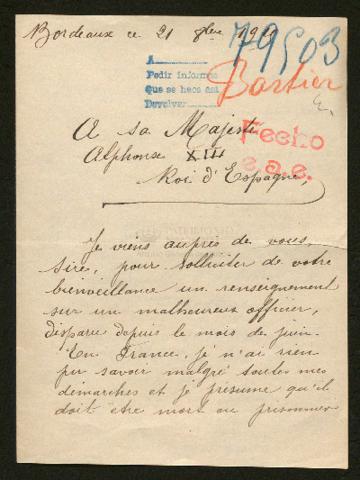 Bordeaux ce 21 8bre
79503
A
Pedir informes
Que se hace así
Devolver
Barbier
A sa Majesté
Alphonse XIII
Roi d'Espagne,
Fecho
e.a.e.
Je viens auprès de vous,
sire, pour solliciter de votre
bienveillance un renseignement
sur un malheureux officier,
disparu depuis le mois de juin.
En France, je n'ai rien
pu savoir malgré toutes mes
démarches et je présume qu'il
doit être mort ou prisonnier